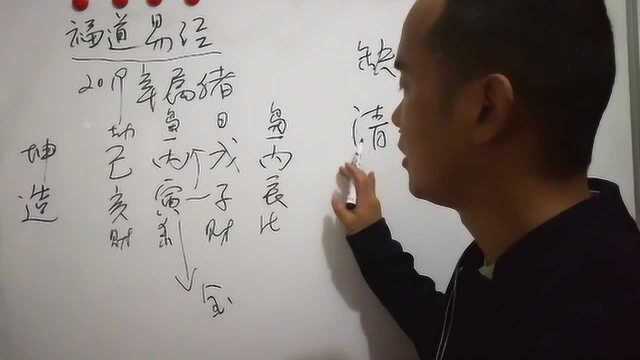 福道易经
2019年属猪
劫 枭 日 枭
坤造 己 丙 戊 丙
亥 寅 子 辰
财 杀 财 比
金
清